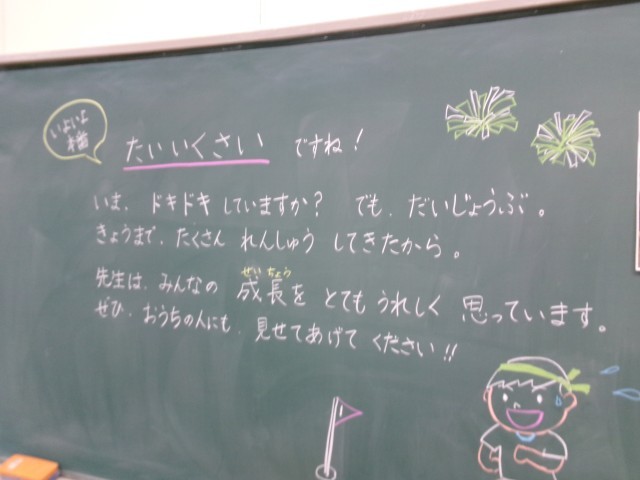 いよいよ
本番
たいいくさい ですね！
いま、ドキドキしていますか？ でも、だいじょうぶ。
きょうまで、たくさん れんしゅう してきたから。
せいちょう
先生は、みんなの 成長を とてもうれしく 思っています。
ぜひ、おうちの人にも、見せてあげて ください！！
1